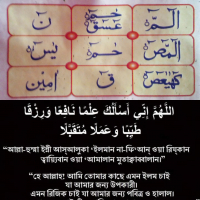 ن حم عسق الر
يس حم المص
امين ق كهيعص
اَللَّهُمَّ إِنِّي أَسْأَلُكَ عِلْمًا نَافِعًا وَرِزْقًا
طَيِّبًا وَعَمَلًا مُتَقَبَّلًا
“আল্লা-হুম্মা ইন্নী আস্আলুকা 'ইলমান না-ফি'আন্ ওয়া রিয্কান
ত্বাইয়্যিবান ওয়া 'আমালান মুতাক্বাব্বালান।”
“হে আল্লাহ! আমি তোমার কাছে এমন ইলম চাই
যা আমার জন্য উপকারী।
এমন রিজিক চাই যা আমার জন্য পবিত্র ও হালাল।